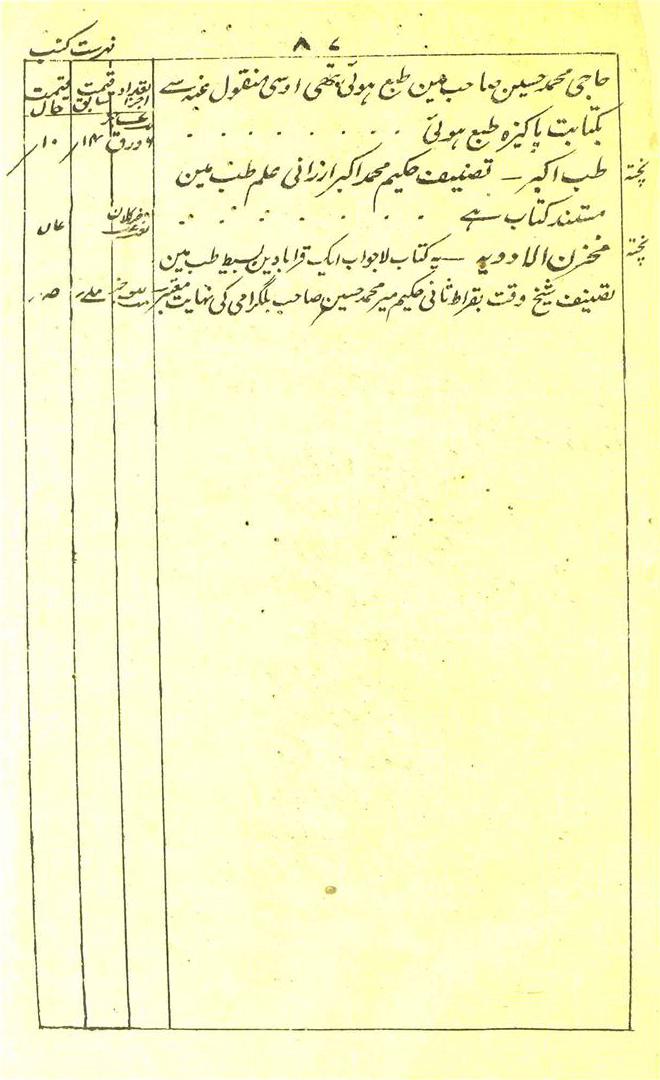 فہرست کتب
۸۷
تعداد اجزا
قیمت سابق
قیمت حال
حاجی محمد حسین صاحب مین طبع ہوئی تھی اوسی منقول عنہ سے
بکتابت پاکیزہ طبع ہوئی . . . . . . . . ورق ۱۴؍ ۱۰؍
پختہ
طب اکبر — تصنیف حکیم محمد اکبر ارزانی علم طب مین
مستند کتاب ہے . . . . . . . .
پختہ
مخزن الادویہ — یہ کتاب لاجواب ایک قرابادین بسیط طب مین
تصنیف شیخ وقت بقراط ثانی حکیم میر محمد حسین صاحب بلگرامی کی نہایت معتبر